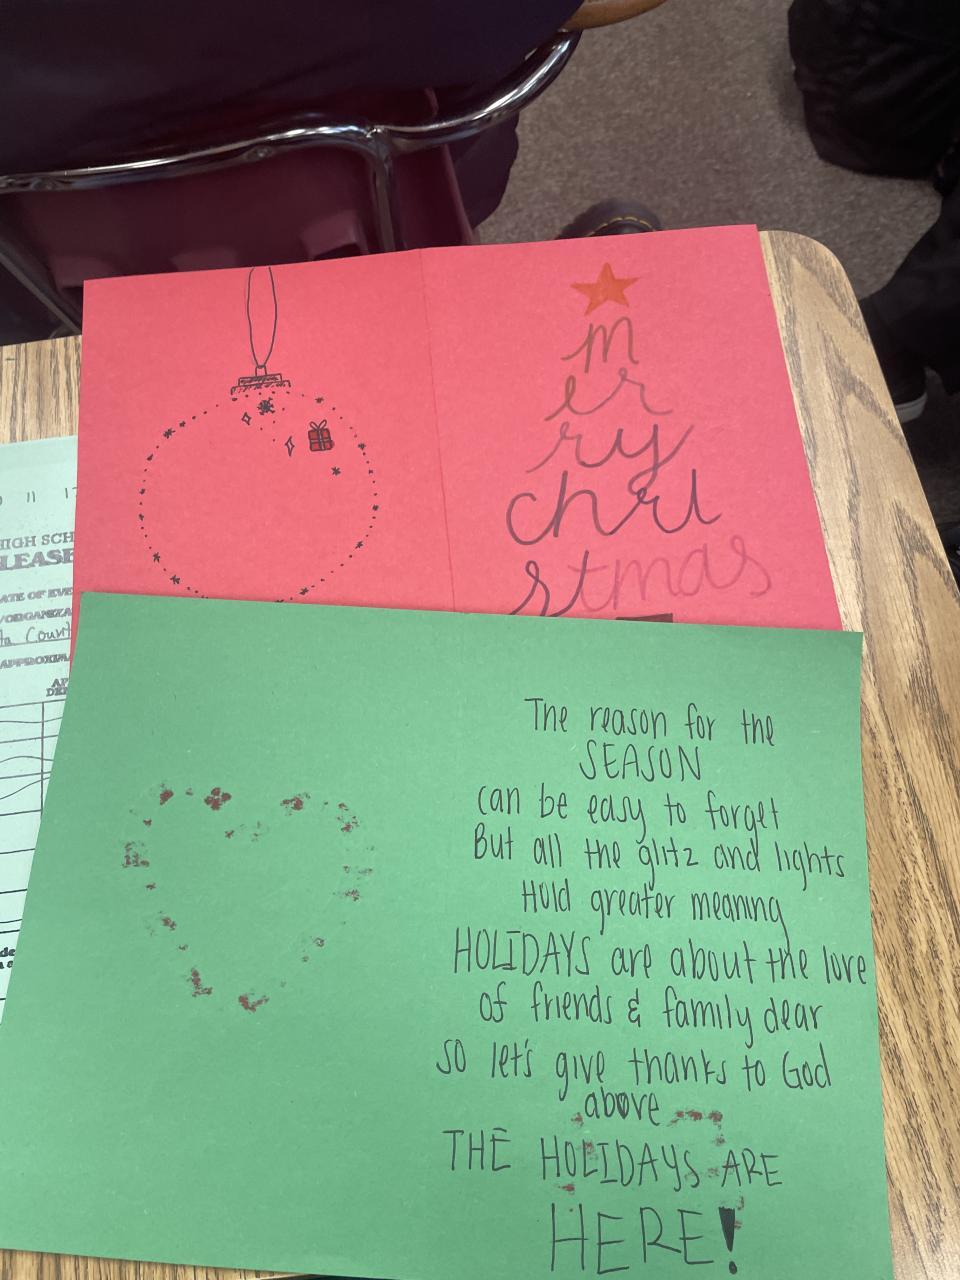 m
er
ry
chri
stmas
11
HIGH SCH
LEASE
ATE OF EVE
/ORGANIZA
ta Count
APPROXIM
AP
DE
The reason for the
SEASON
can be easy to forget
But all the glitz and lights
Hold greater meaning
HOLIDAYS are about the love
of friends & family dear
so let's give thanks to God
above
THE HOLIDAYS ARE
HERE!